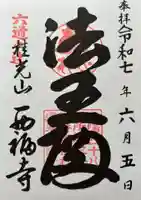 奉拝
令和七年六月五日
法王殿
六道
桂光山
西福寺